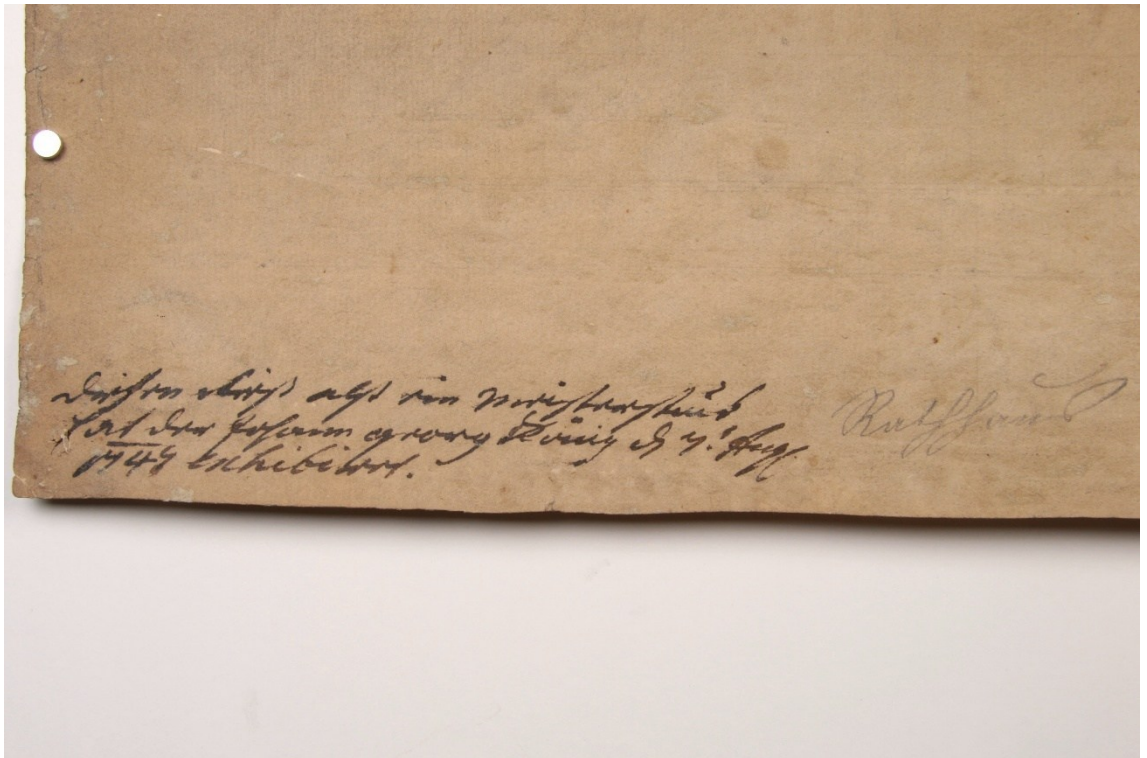 diesen Riss alß ein Meisterstuck
hat der Johann georg König d 7t Aug.
1747 exhibiert.
Rathhaus